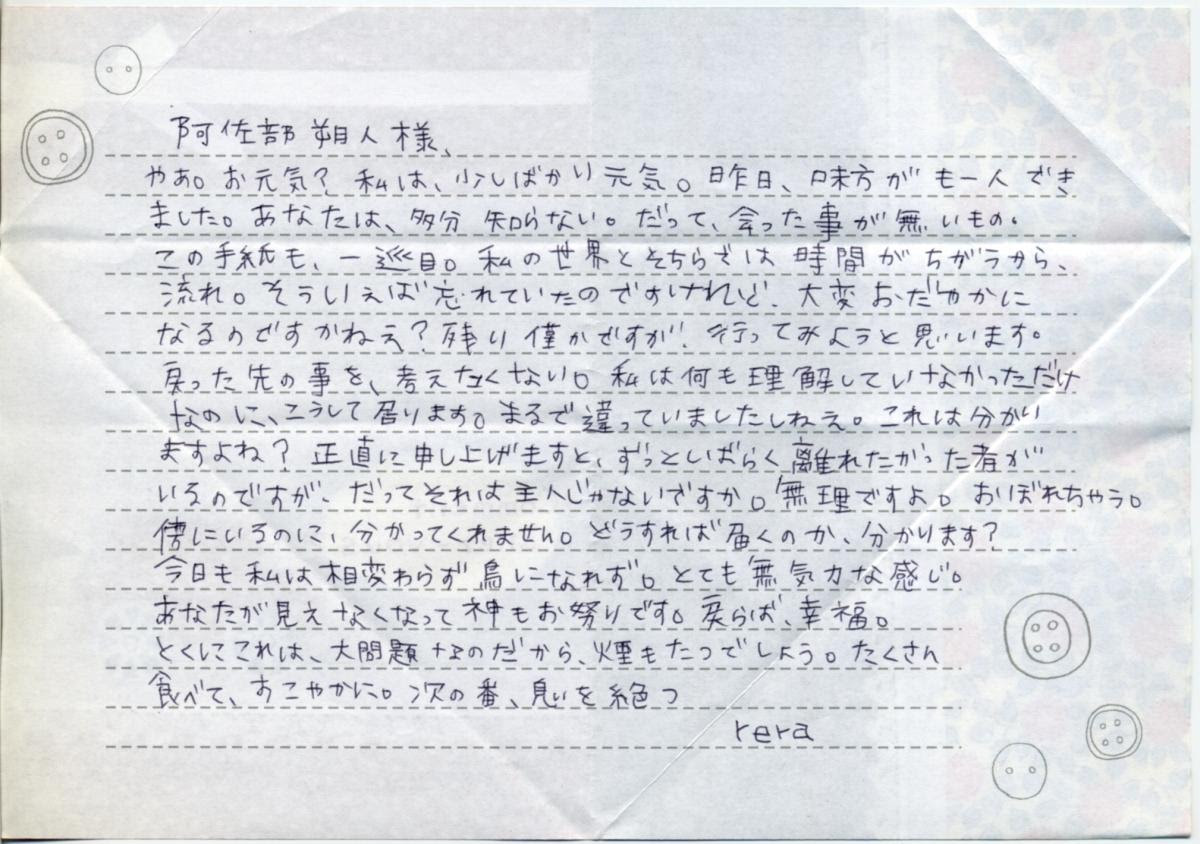 阿佐部朔人様、
やあ。お元気？私は、少しばかり元気。昨日、味方がも一人でき
ました。あなたは、多分知らない。だって、会った事が無いもの。
この手紙も、一巡目。私の世界とそちらでは時間がちがうから、
流れ。そういえば忘れていたのですけれど、大変おだやかに
なるのですかねえ？残り僅かですが、行ってみようと思います。
戻った先の事を、考えたくない。私は何も理解していなかっただけ
なのに、こうして居ります。まるで違っていましたしねえ。これは分かい
ますよね？正直に申し上げますと、ずっといばらく離れたかった者が
いるのですが、だってそれは主人じゃないですか。無理ですよ。おぼれちゃう。
傍にいるのに、分かってくれません。どうすれば届くのか、分かります？
今日も私は相変わらず鳥になれず。とても無気力な感じ。
あなたが見えなくなって神もお怒りです。戻らば、幸福。
とくにこれは、大問題なのだから、煙もたつでしょう。たくさん
食べて、すこやかに。次の番、息いを絶つ
rera